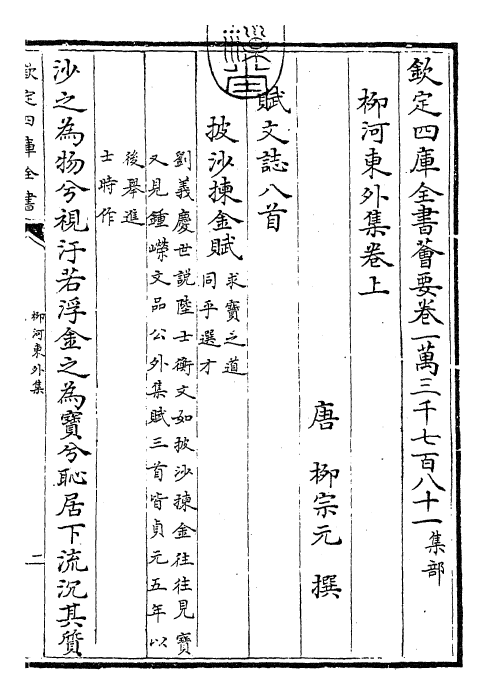 欽定四庫全書薈要卷一萬三千七百八十一集部
柳河東外集卷上
唐 柳宗元 撰
賦文誌八首
披沙揀金賦 求寶之道
同乎選才
劉義慶世說陸士衡文如披沙揀金往往見寶
又見鍾嶸文品公外集賦三首皆貞元五年以
後舉進
士時作
沙之為物兮視汙若浮金之為寶兮恥居下流沉其質
欽定四庫全書
柳河東外集
二